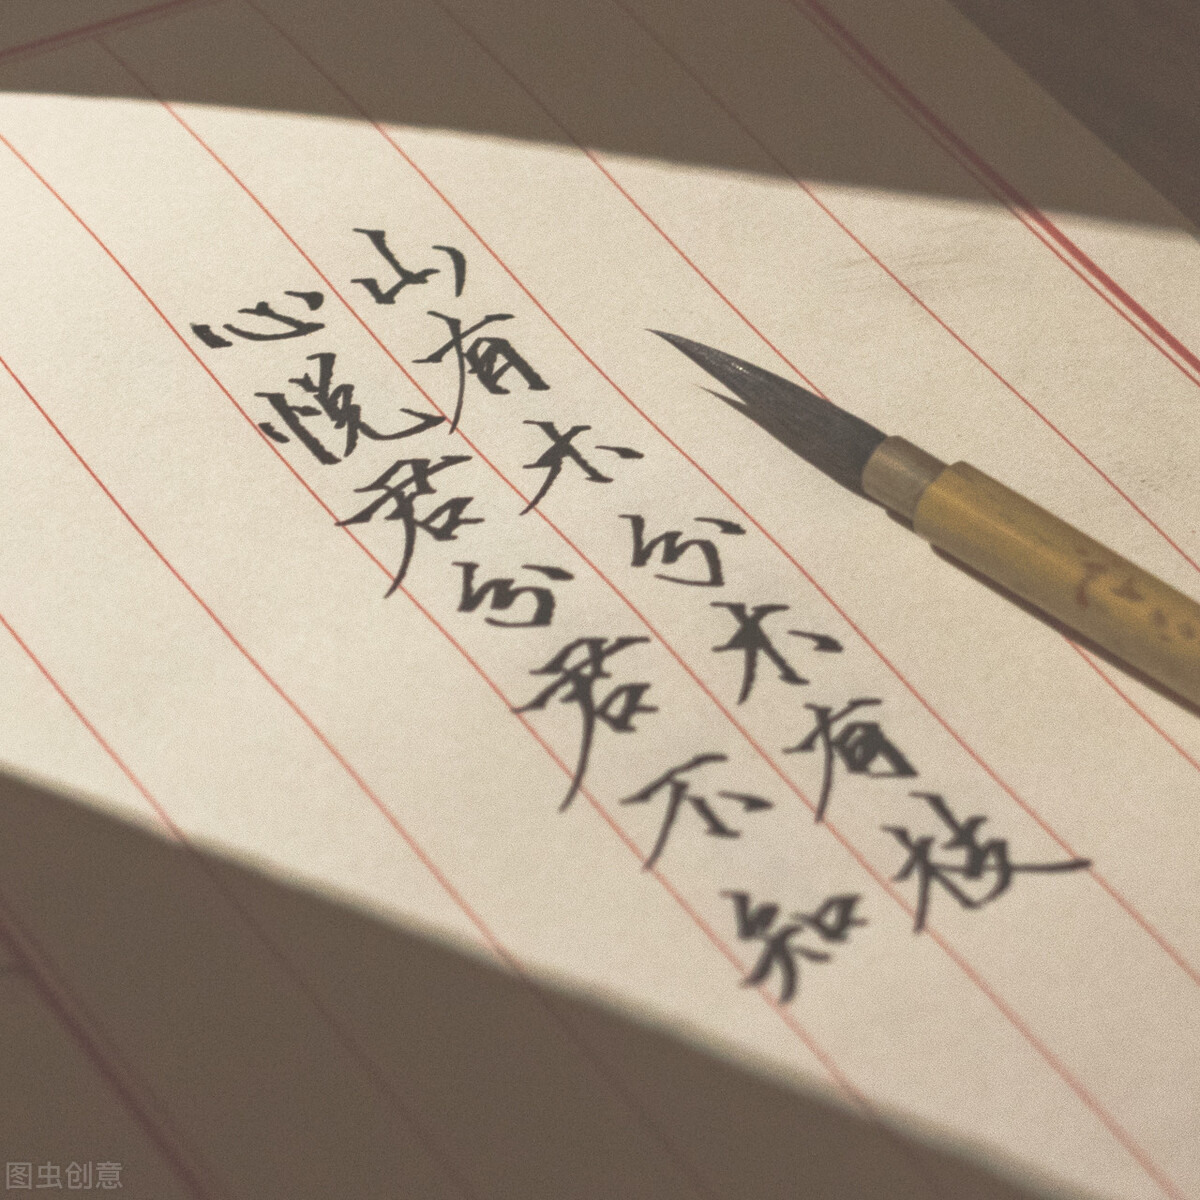 山有木兮木有枝
心悦君兮君不知
图虫创意